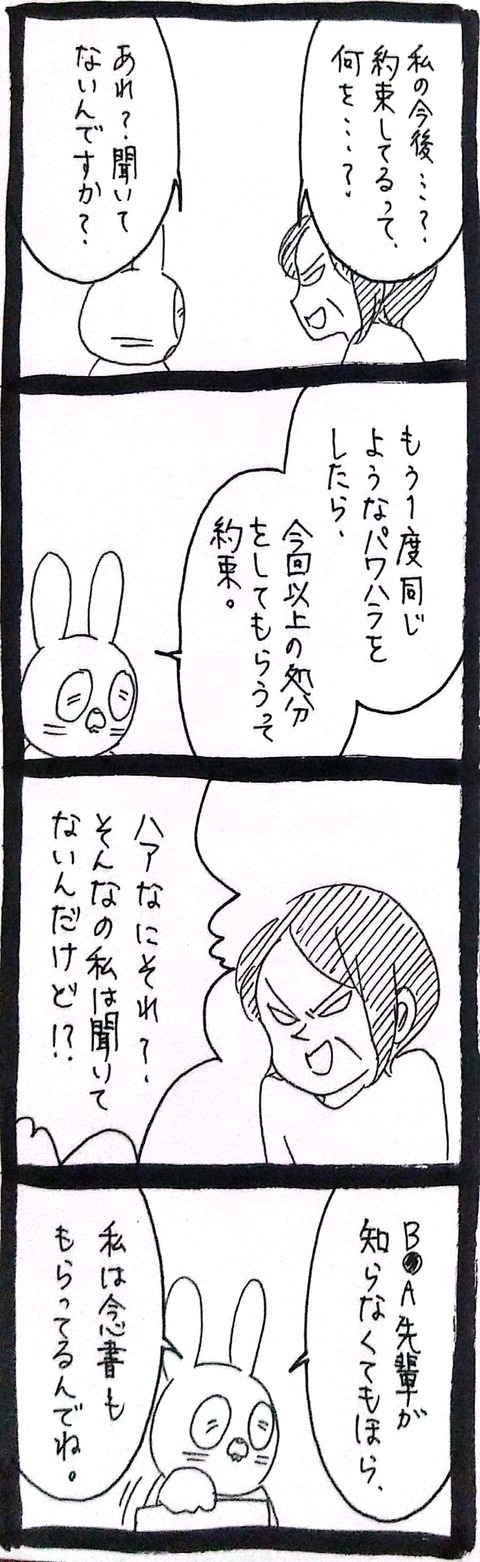 私の今後…?
約束してるって、
何を…?
あれ?聞いて
ないんですか?
もう1度同じ
ようなパワハラを
したら、
今回以上の処分
をしてもらうって
約束。
ハアなにそれ?
そんなの私は聞いて
ないんだけど!?
B A先輩が
知らなくてもほら、
私は念書も
もらってるんでね。